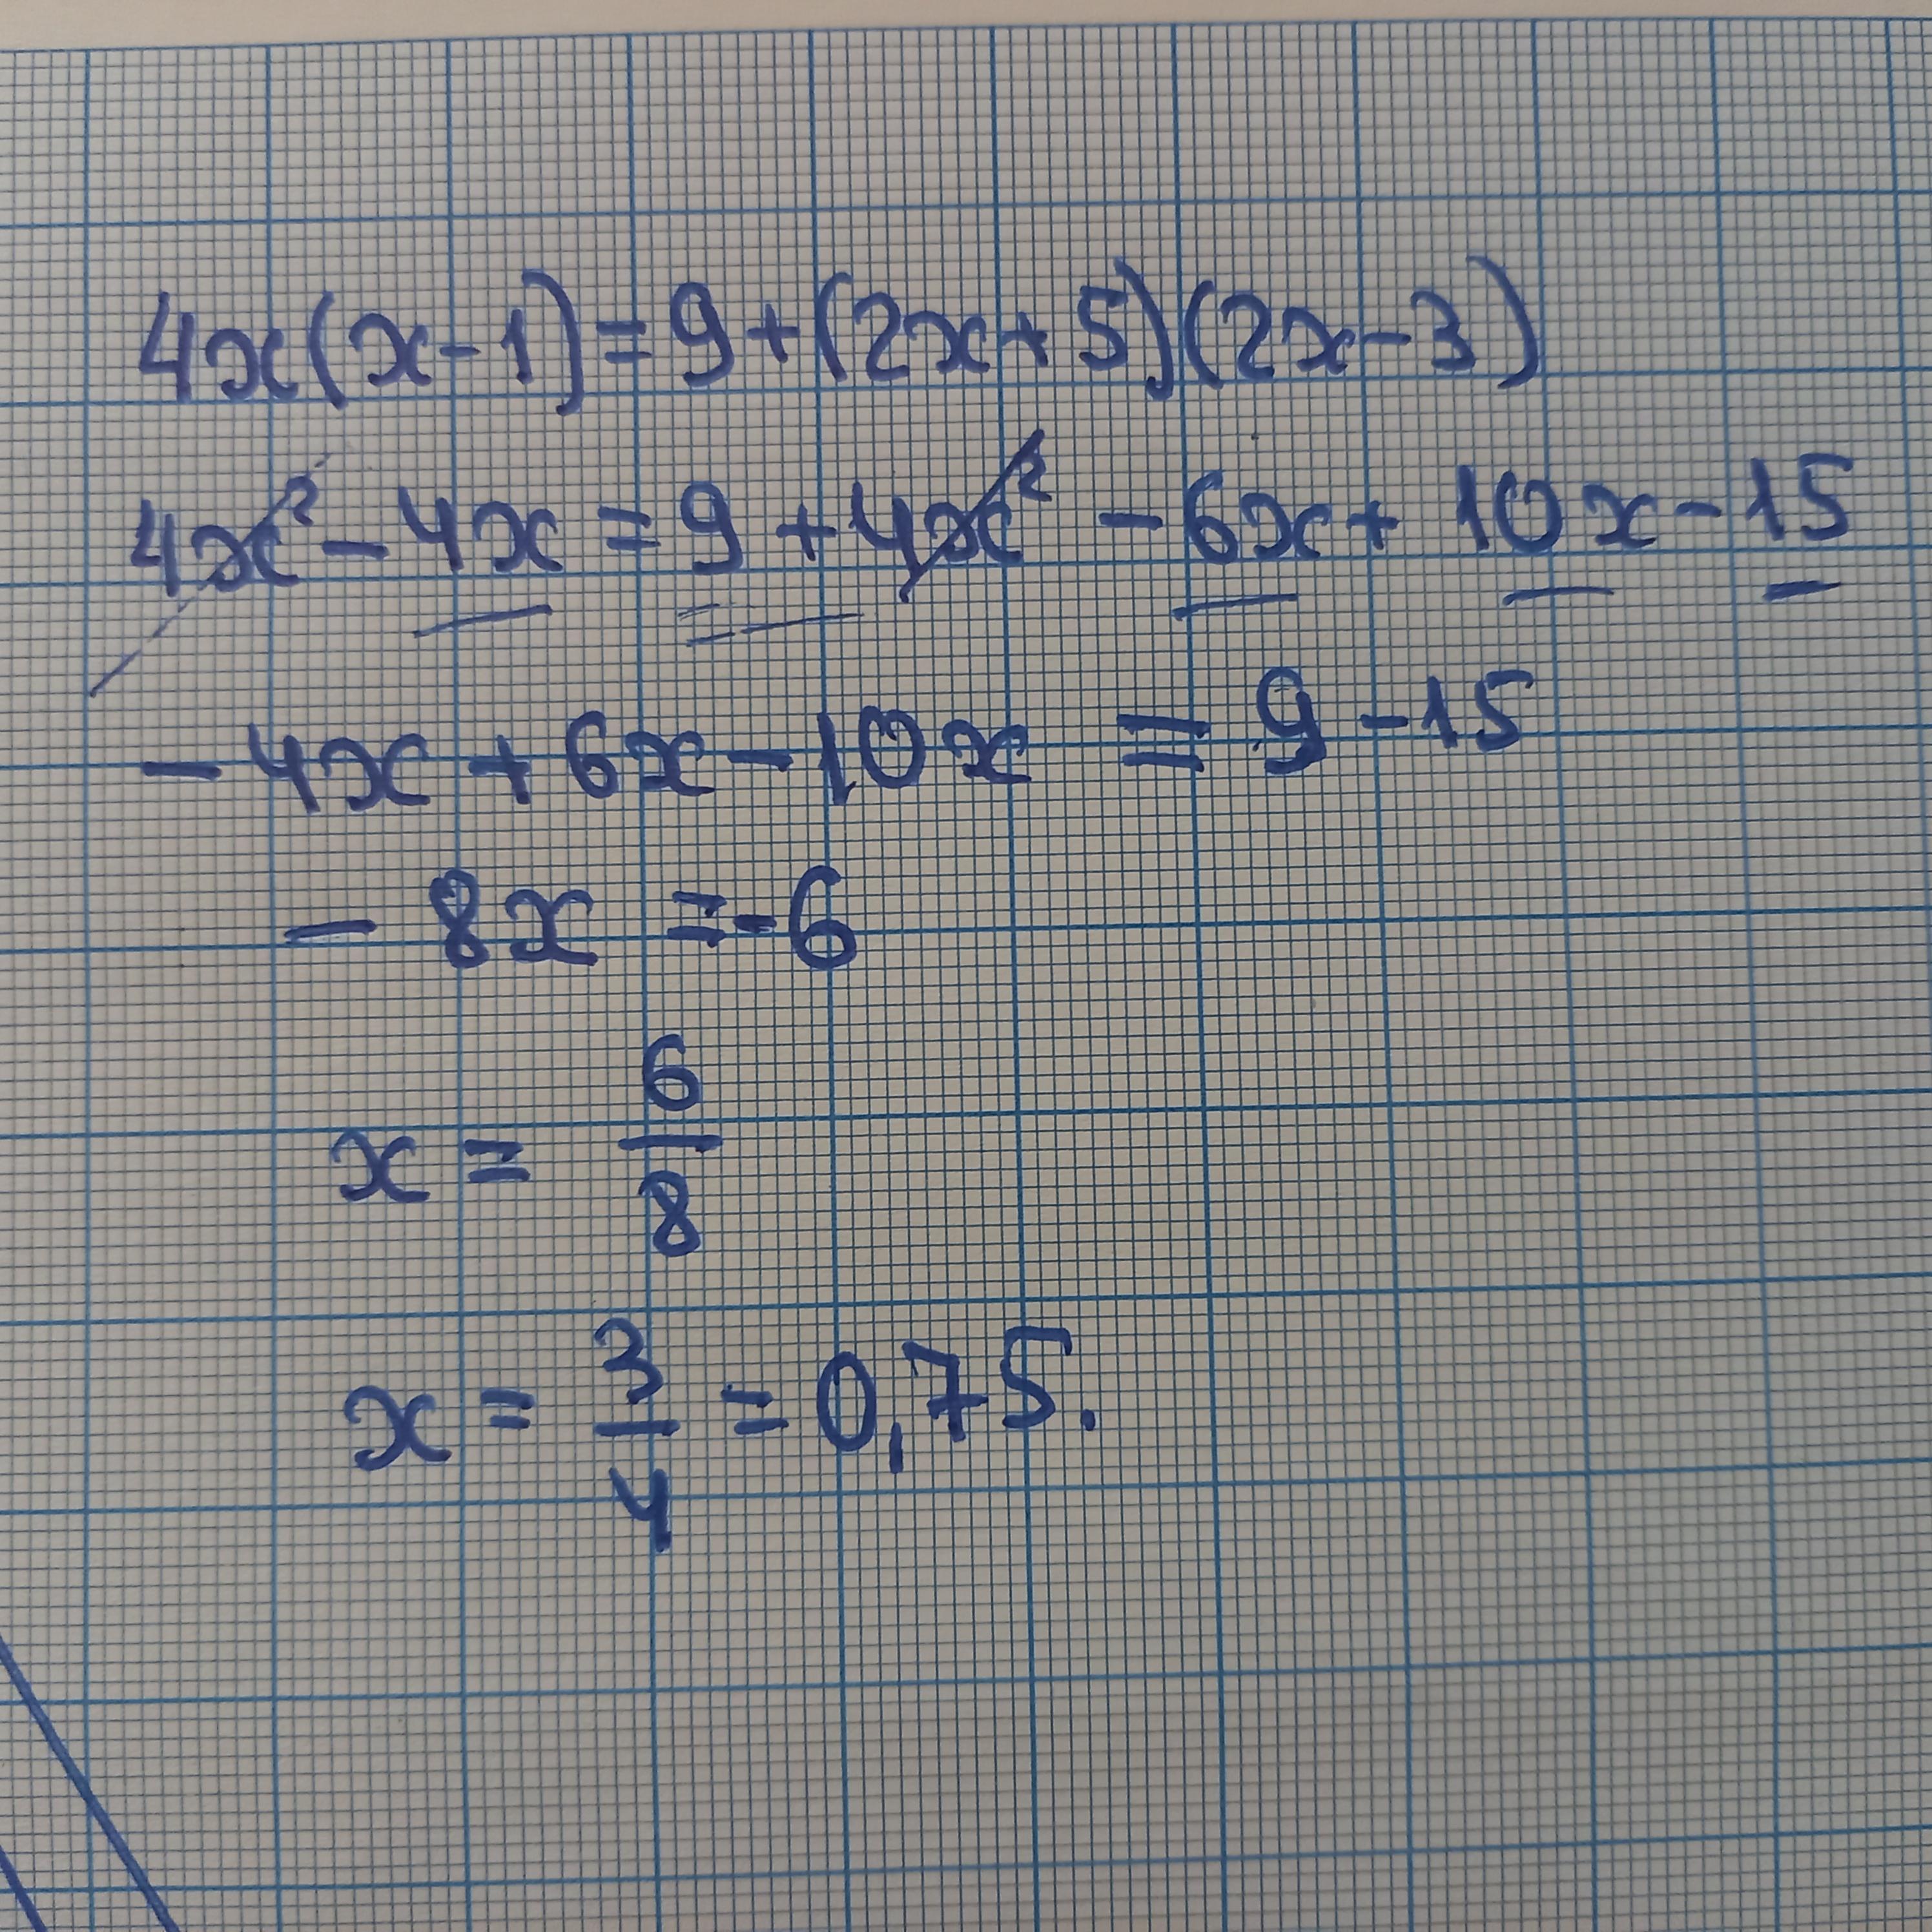 4x(x-1)=9+(2x+5)(2x-3)
4x²-4x=9+4x²-6x+10x-15
-4x+6x-10x=9-15
-8x=-6
x=6/8
x=3/4=0,75.